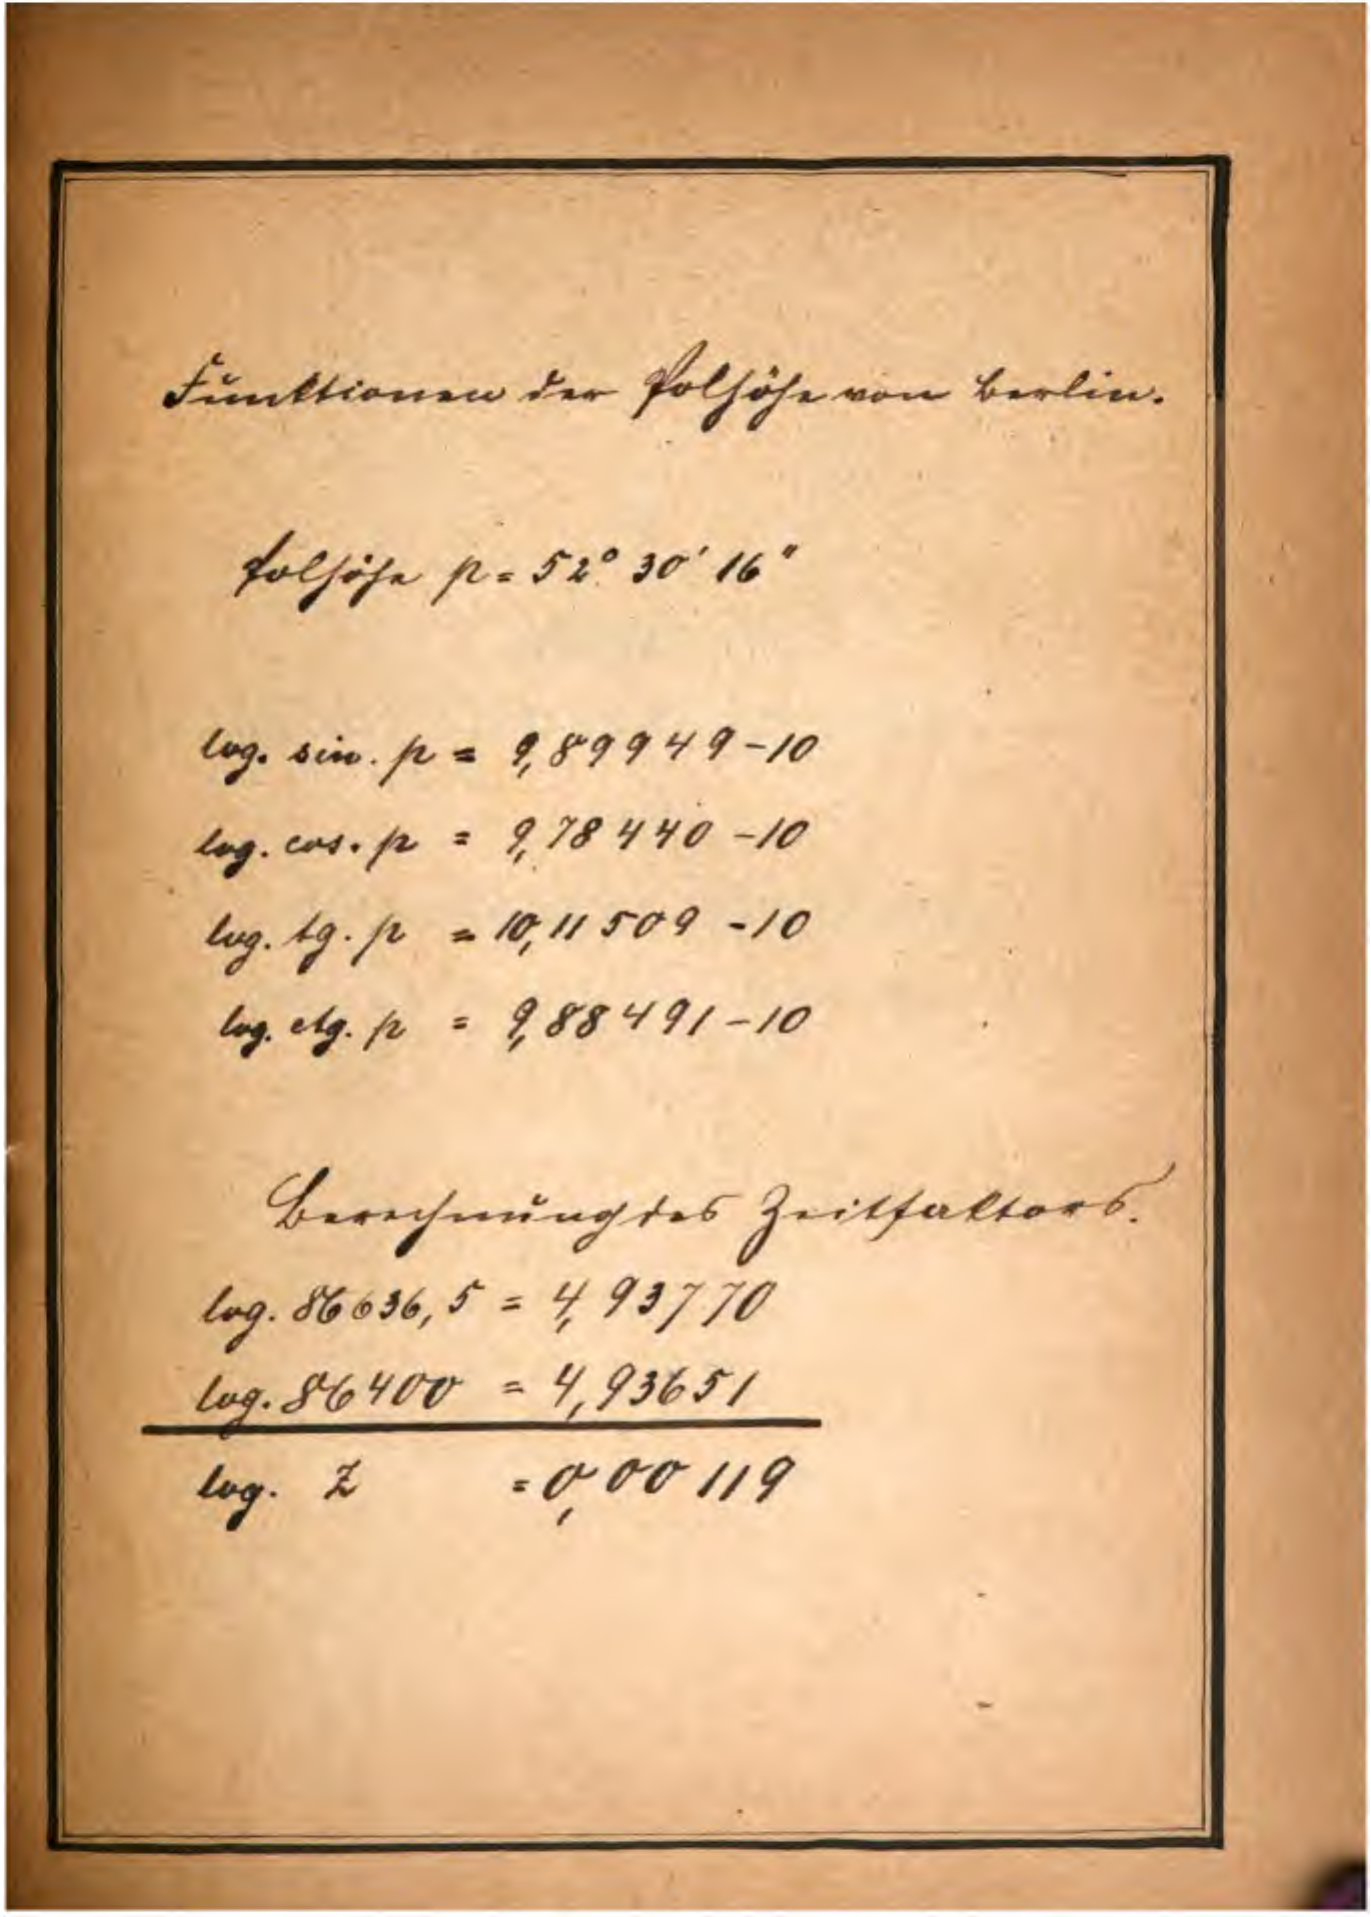 Funktionen der Polhöhe von Berlin.
Polhöhe p = 52° 30' 16"
log. sin. p = 9,89949-10
log. cos. p = 9,78440-10
log. tg. p = 10,11509-10
log. ctg. p = 9,88491-10
Berechnung des Zeitfaktors.
log. 86636,5 = 4,93770
log. 86400 = 4,93651
log. Z = 0,00119